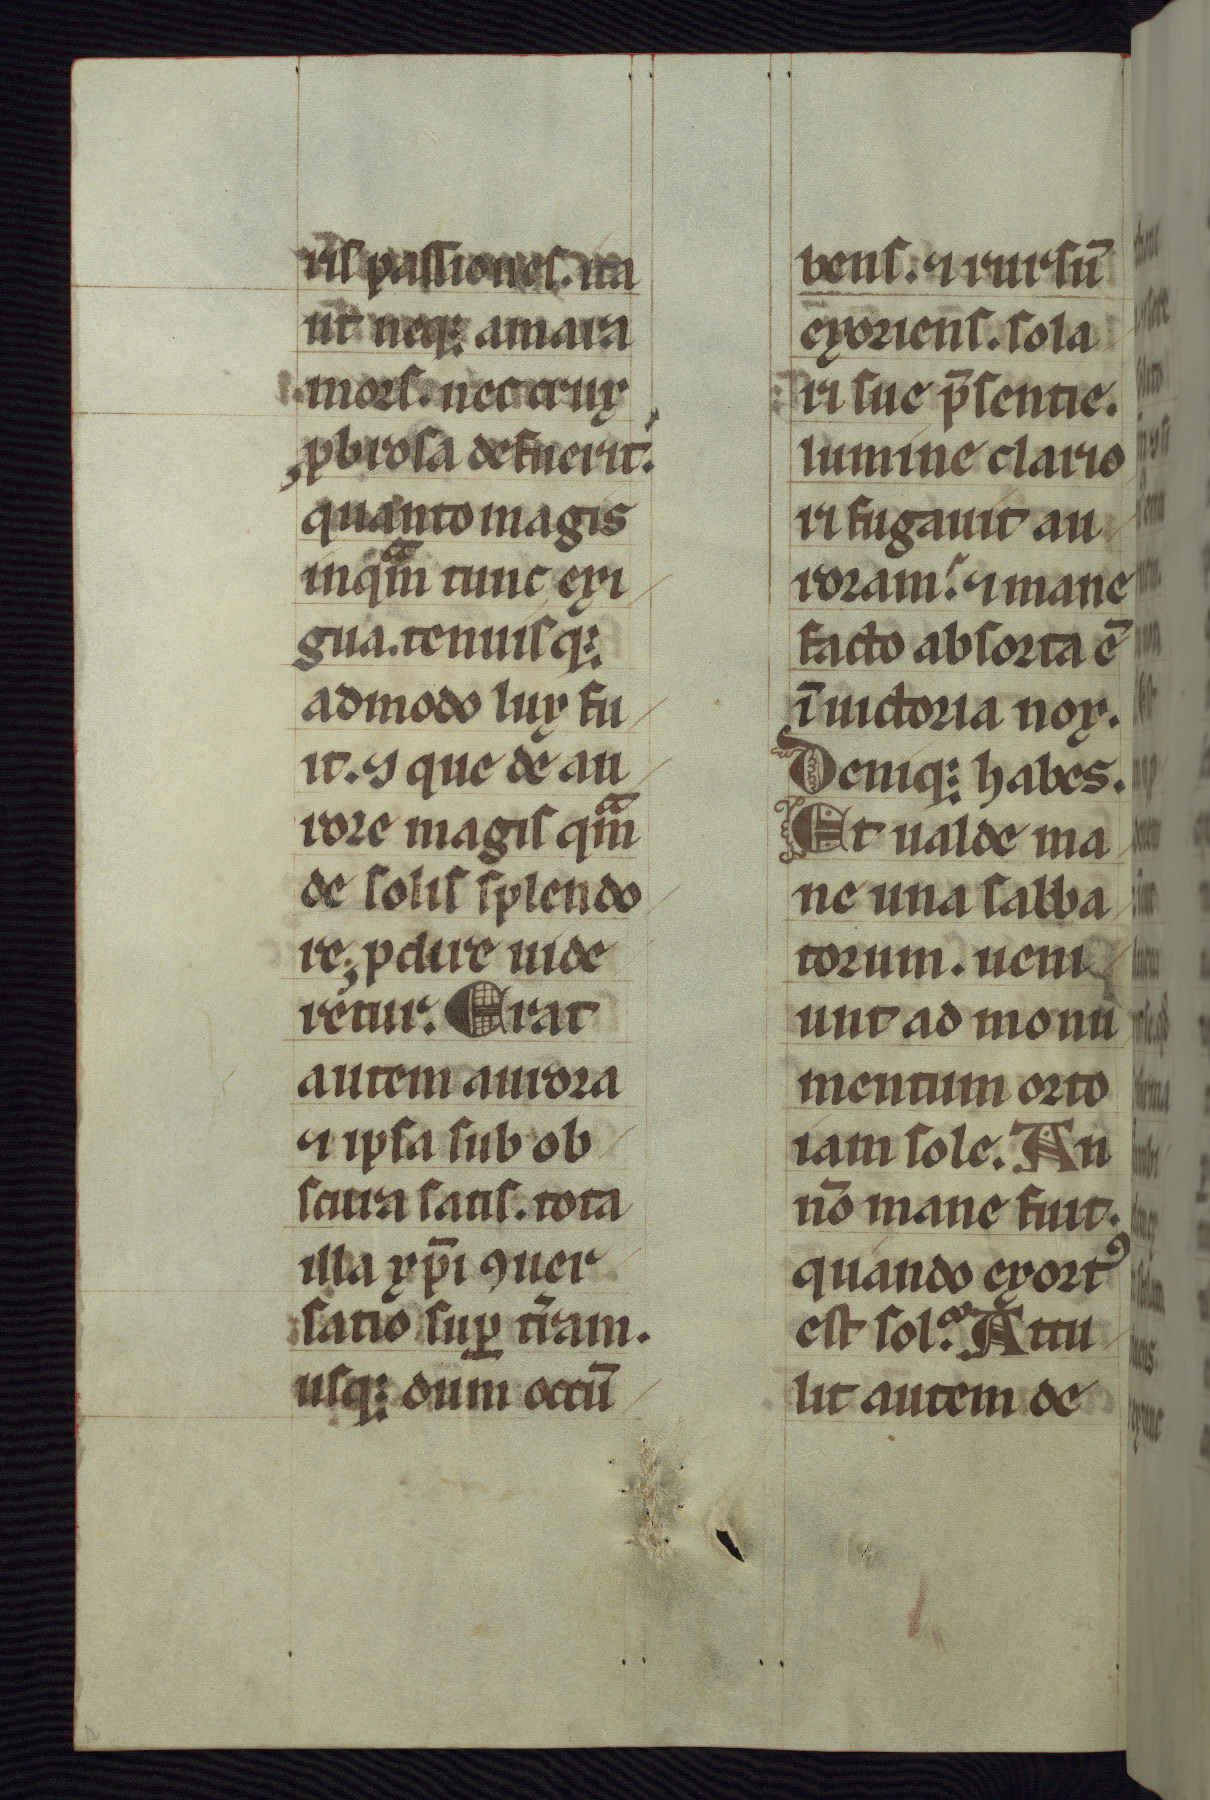 ris passiones. ita
ut neq; amara
mors. nec crux
ꝓbrosa defuerit.
quanto magis
inqͣm tunc exi
gua. tenuisq;
admodo lux fu
it. ⁊ que de au
rore magis qͣm
de solis splendo
re; ꝓdire uide
retur. Erat
autem aurora
⁊ ipsa sub ob
scura satis. tota
illa xp̄i ꝯuer
satio suꝑ t̄ram.
usq; dum occū
bens. ⁊ rursū
exoriens. sola
ri sue p̄sentie.
lumine clario
ri fugauit au
roram. ⁊ mane
facto absorta ē
ī uictoria nox.
Deniq; habes.
Et ualde ma
ne una sabba
torum. ueni
unt ad monu
mentum orto
iam sole. An
nō mane fuit.
quando exortꝰ
est sol. Attu
lit autem de